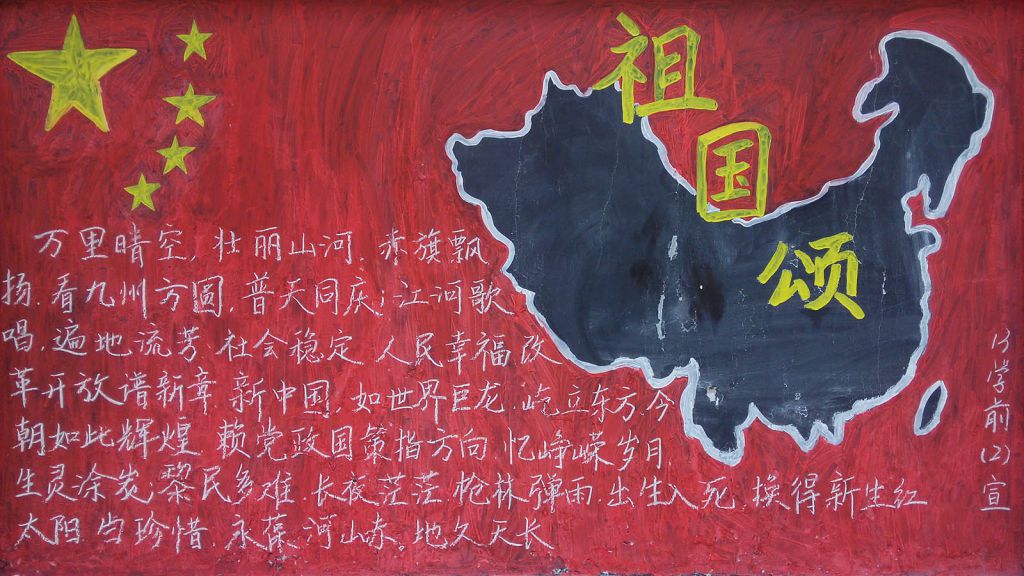 祖国颂
万里晴空,壮丽山河.赤旗飘
扬.看九州方圆,普天同庆;江河歌
唱,遍地流芳.社会稳定.人民幸福.改
革开放谱新章.新中国.如世界巨龙.屹立东方.今
朝如此辉煌.赖党政国策指方向.忆峥嵘岁月
生灵涂炭.黎民多难.长夜茫茫.枪林弹雨.出生入死.换得新生红
太阳当珍惜.永葆河山赤。地久天长
13学前(2)宣